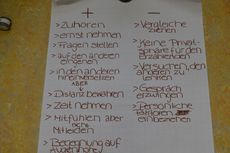 +
> Zuhören
> ernst nehmen
> Fragen stellen
> auf den anderen
eingehen
> in den anderen
hineinversetzen
ABER
> Distanz bewahren
> Zeit nehmen
> Mitfühlen aber
nicht
Mitleiden
> Begegnung auf
Augenhöhe
-
> Vergleiche
ziehen
> Keine Privat-
sphäre für den
Erzählenden
> Versuchen, den
anderen zu
> Gespräch
erzwingen
> Persönliche
Faktoren
einbeziehen